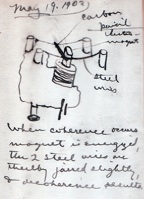 May 19. 1902
carbon
point
electro
magnet
steel
wires
When coherence occurs
magnet is energized,
the 2 steel wires are
thereby joined slightly
& decoherence results